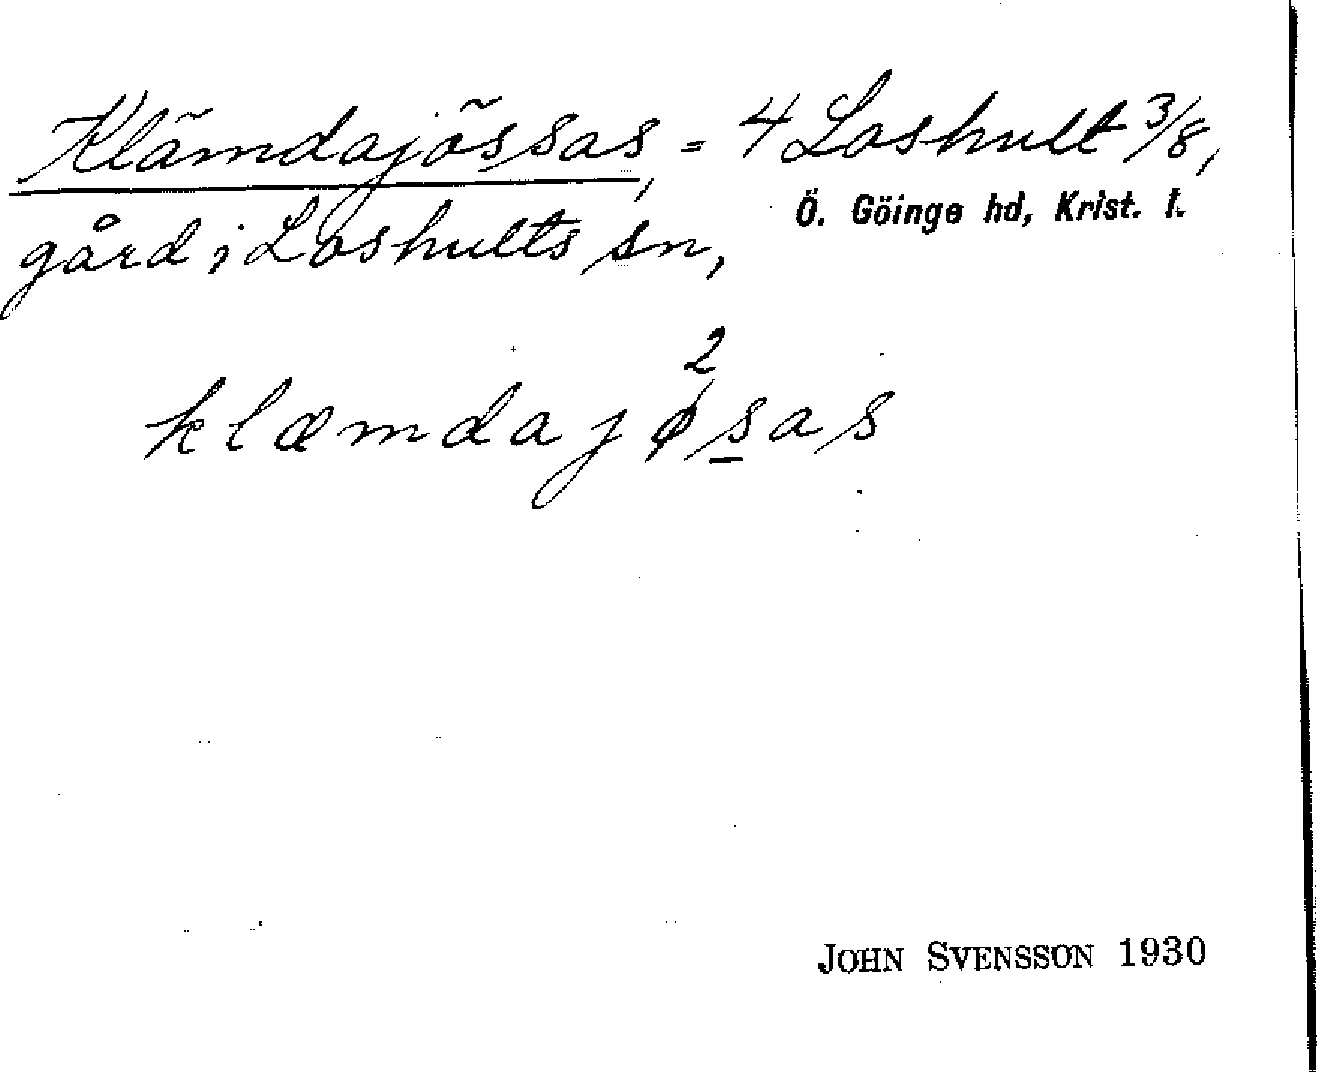 Klämdajössas, = 4 Loshult 3/8,
gård i Loshults sn, Ö. Göinge hd, Krist. l.
2
klæmdajøsas
JOHN SVENSSON 1930